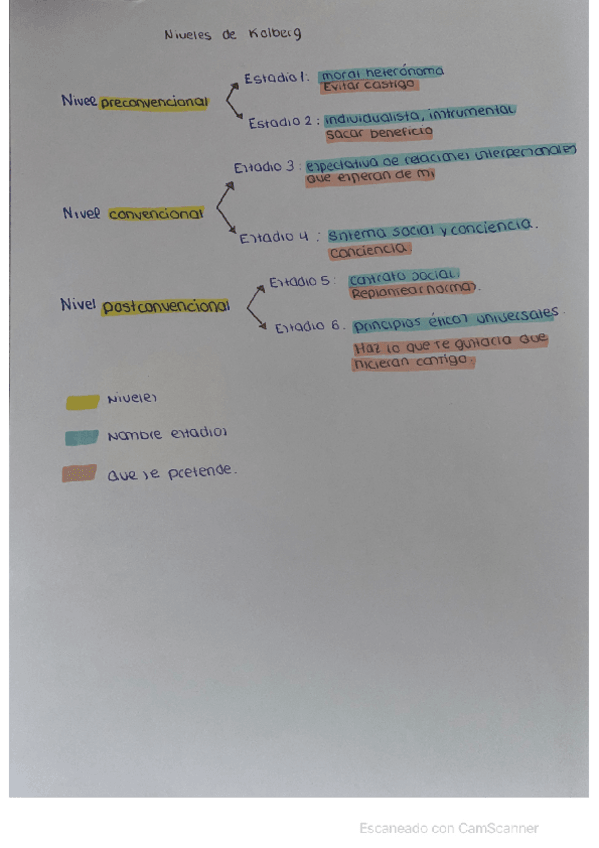 Niveles de Kolberg
Estadio 1: moral heterónoma
Evitar castigo
Nivel preconvencional
Estadio 2: individualista, intrumental
sacar beneficio
Estadio 3: expectativa de relaciones interpersonales
que esperan de mi
Nivel convencional
Estadio 4: sistema social y conciencia.
conciencia.
Estadio 5: contrato social.
Replantear norma.
Nivel postconvencional
Estadio 6. principios éticos universales.
Haz lo que te gustaria que
hicieran contigo.
Niveles
Nombre estadios
que se pretende.
Escaneado con CamScanner